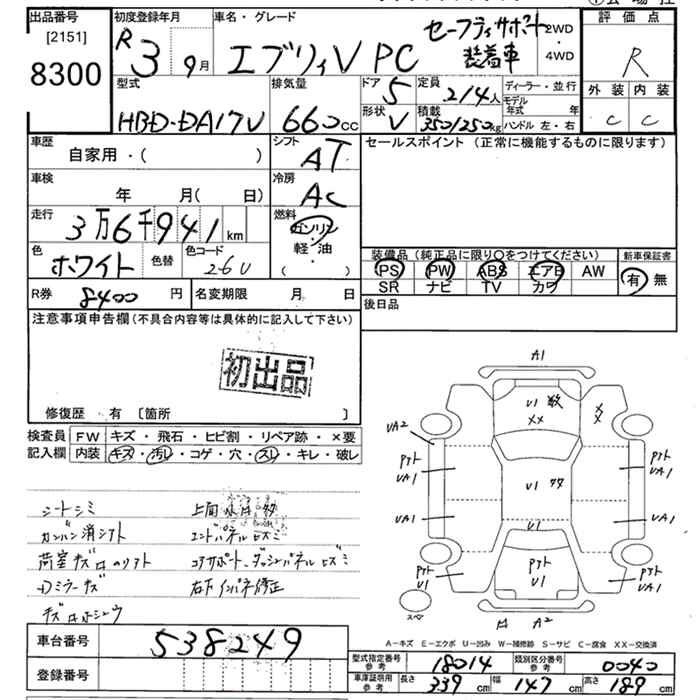 出品番号 初度登録年月 車名・グレード 評価点
[2151]
8300
R3 9月 エブリィV PC セーフティサポート装着車 2WD・4WD R
型式 排気量 ドア 5 定員 2/4人 ディーラー・並行 外装 内装
HBD-DA17V 660cc 形状 V 積載 350/250kg モデル年式 年 ハンドル 左・右 C C
車歴 自家用・( ) シフト AT セールスポイント(正常に機能するものに限ります)
車検 年 月( 日) 冷房 AC
走行 3万6千941km 燃料 ガソリン・軽・油 ( )
色 ホワイト 色替 色コード 26U
装備品(純正品に限り○をつけてください) 新車保証書
PS PW ABS エアB AW 有・無
SR ナビ TV カワ
R券 8400円 名変期限 月 日 後日品
注意事項申告欄(不具合内容等は具体的に記入して下さい)
初出品
修復歴・有 〔箇所 〕
検査員 FW キズ・飛石・ヒビ割・リペア跡・×要
記入欄 内装 キズ・汚レ・コゲ・穴・スレ・キレ・破レ
シートシミ
エンドパネルヒズミ
コアサポート、ダッシュパネルヒズミ
右下インパネ修正
A1
U1
XX
XX
UA2
UA1
UA1
U1
UA1
UA1
U1
U1
U1
スペア
A2
A-キズ E-エクボ U-凹み W-補修跡 S-サビ C-腐食 XX-交換済
車台番号 538249
登録番号
型式指定番号 参考 18014 類別区分番号 参考 0040
車庫証明用 参考 長さ 339cm 幅 147cm 高さ 189cm